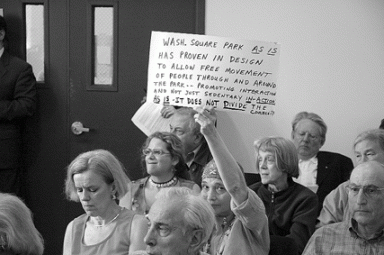 WASH. SQUARE PARK AS IS
HAS PROVEN IN DESIGN
TO ALLOW FREE MOVEMENT
OF PEOPLE THROUGH AND AROUND
THE PARK -- PROMOTING INTERACTION
AND NOT JUST SEDENTARY IN-ACTION
AS IS - IT DOES NOT DIVIDE THE